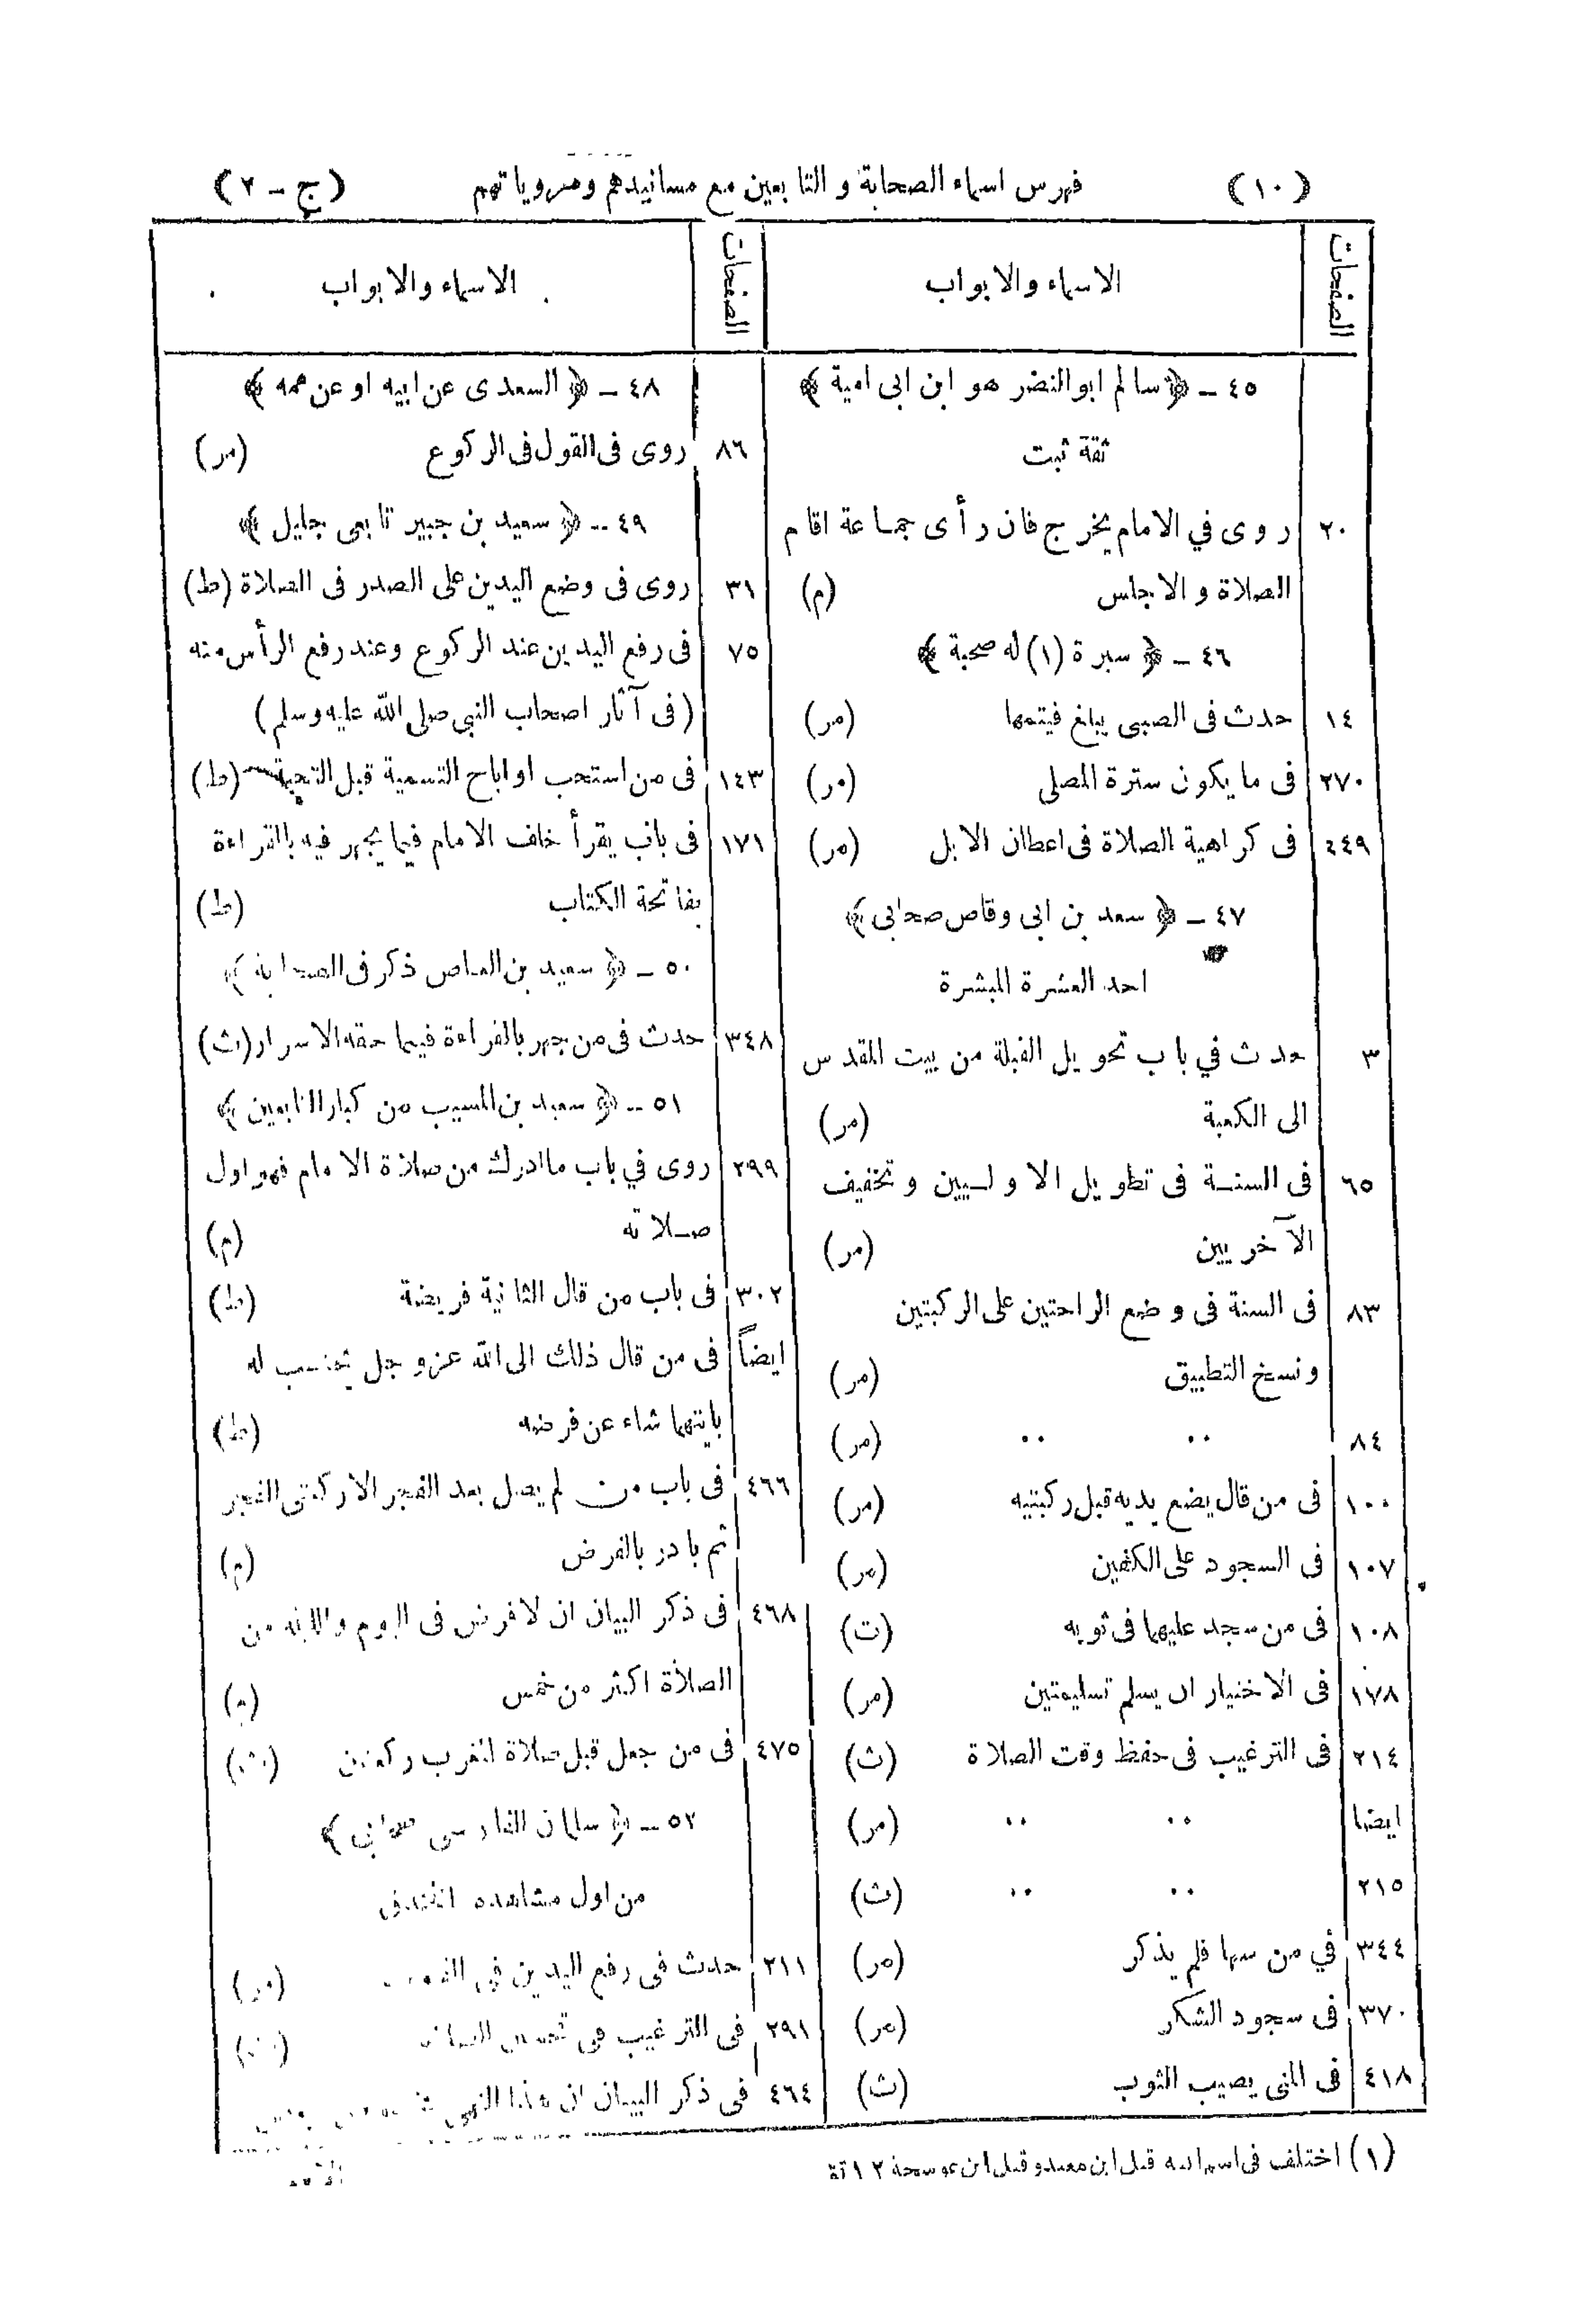 (١٠) فهرس اسماء الصحابة و التابعين مع مسانيدهم ومروياتهم (ج - ٢)
الصفحات الاسماء والابواب
٤٥ - ﴿ سالم ابوالنضر هو ابن ابى امية ﴾
ثقة ثبت
٢٠ روى في الامام يخرج فان رأى جماعة اقام
الصلاة و الاجلس (م)
٤٦ - ﴿ سبرة (١) له صحبة ﴾
١٤ حدث فى الصبى يبلغ فيتمها (مر)
٢٧٠ فى ما يكون سترة المصلى (مر)
٤٤٩ فى كراهية الصلاة فى اعطان الابل (مر)
٤٧ - ﴿ سعد بن ابى وقاص صحابى ﴾
احد العشرة المبشرة
٣ حدث في باب تحويل القبلة من بيت المقدس
الى الكعبة (مر)
٦٥ فى السنة فى تطويل الاوليين وتخفيف
الآخريين (مر)
٨٣ فى السنة فى وضع الراحتين على الركبتين
ونسخ التطبيق (مر)
٨٤ ،، ،، (مر)
١٠٠ فى من قال يضع يديه قبل ركبتيه (مر)
١٠٧ فى السجود على الكفين (مر)
١٠٨ فى من سجد عليهما فى ثوبه (ت)
١٧٨ فى الاختيار ان يسلم تسليمتين (مر)
٢١٤ فى الترغيب فى حفظ وقت الصلاة (ث)
ايضا ،، ،، (مر)
٢١٥ ،، ،، (ث)
٣٤٤ في من سها فلم يذكر (مر)
٣٧٠ فى سجود الشكر (مر)
٤١٨ فى المنى يصيب الثوب (ث)
الصفحات الاسماء والابواب
٤٨ - ﴿ السعدى عن ابيه او عن عمه ﴾
٨٦ روى فى القول فى الركوع (مر)
٤٩ - ﴿ سعيد بن جبير تابعى جليل ﴾
٣١ روى فى وضع اليدين على الصدر فى الصلاة (ط)
٧٥ فى رفع اليدين عند الركوع وعند رفع الرأس منه
(فى آثار اصحاب النبى صلى الله عليه وسلم)
١٤٣ فى من استحب او اباح التسمية قبل التحية (ط)
١٧١ فى باب يقرأ خلف الامام فيما يجهر فيه بالقراءة
بفاتحة الكتاب (ط)
٥٠ - ﴿ سعيد بن العاص ذكر فى الصحابة ﴾
٣٤٨ حدث فى من جهر بالقراءة فيما حقه الاسرار (ث)
٥١ - ﴿ سعيد بن المسيب من كبار التابعين ﴾
٢٩٩ روى في باب ما ادرك من صلاة الامام فهو اول
صلاته (م)
٣٠٢ فى باب من قال الثانية فريضة (ط)
ايضاً فى من قال ذلك الى الله عز وجل يحتسب له
بايتهما شاء عن فرضه (ط)
٤٦٦ فى باب من لم يصل بعد الفجر الا ركعتى الفجر
ثم بادر بالفرض (م)
٤٦٨ فى ذكر البيان ان لا فرض فى اليوم والليلة من
الصلاة اكثر من خمس
٤٧٥ فى من جعل قبل صلاة المغرب ركعتين
٥٢ - ﴿ سلمان الفارسى صحابى ﴾
من اول مشاهده الخندق
٢١١ حدث فى رفع اليدين في (مر)
٢٩١ فى الترغيب فى
٤٦٤ فى ذكر البيان ان هذا النهى
(١) اختلف فى اسم ابيه قيل ابن معبد وقيل ابن عوسجة ١٢